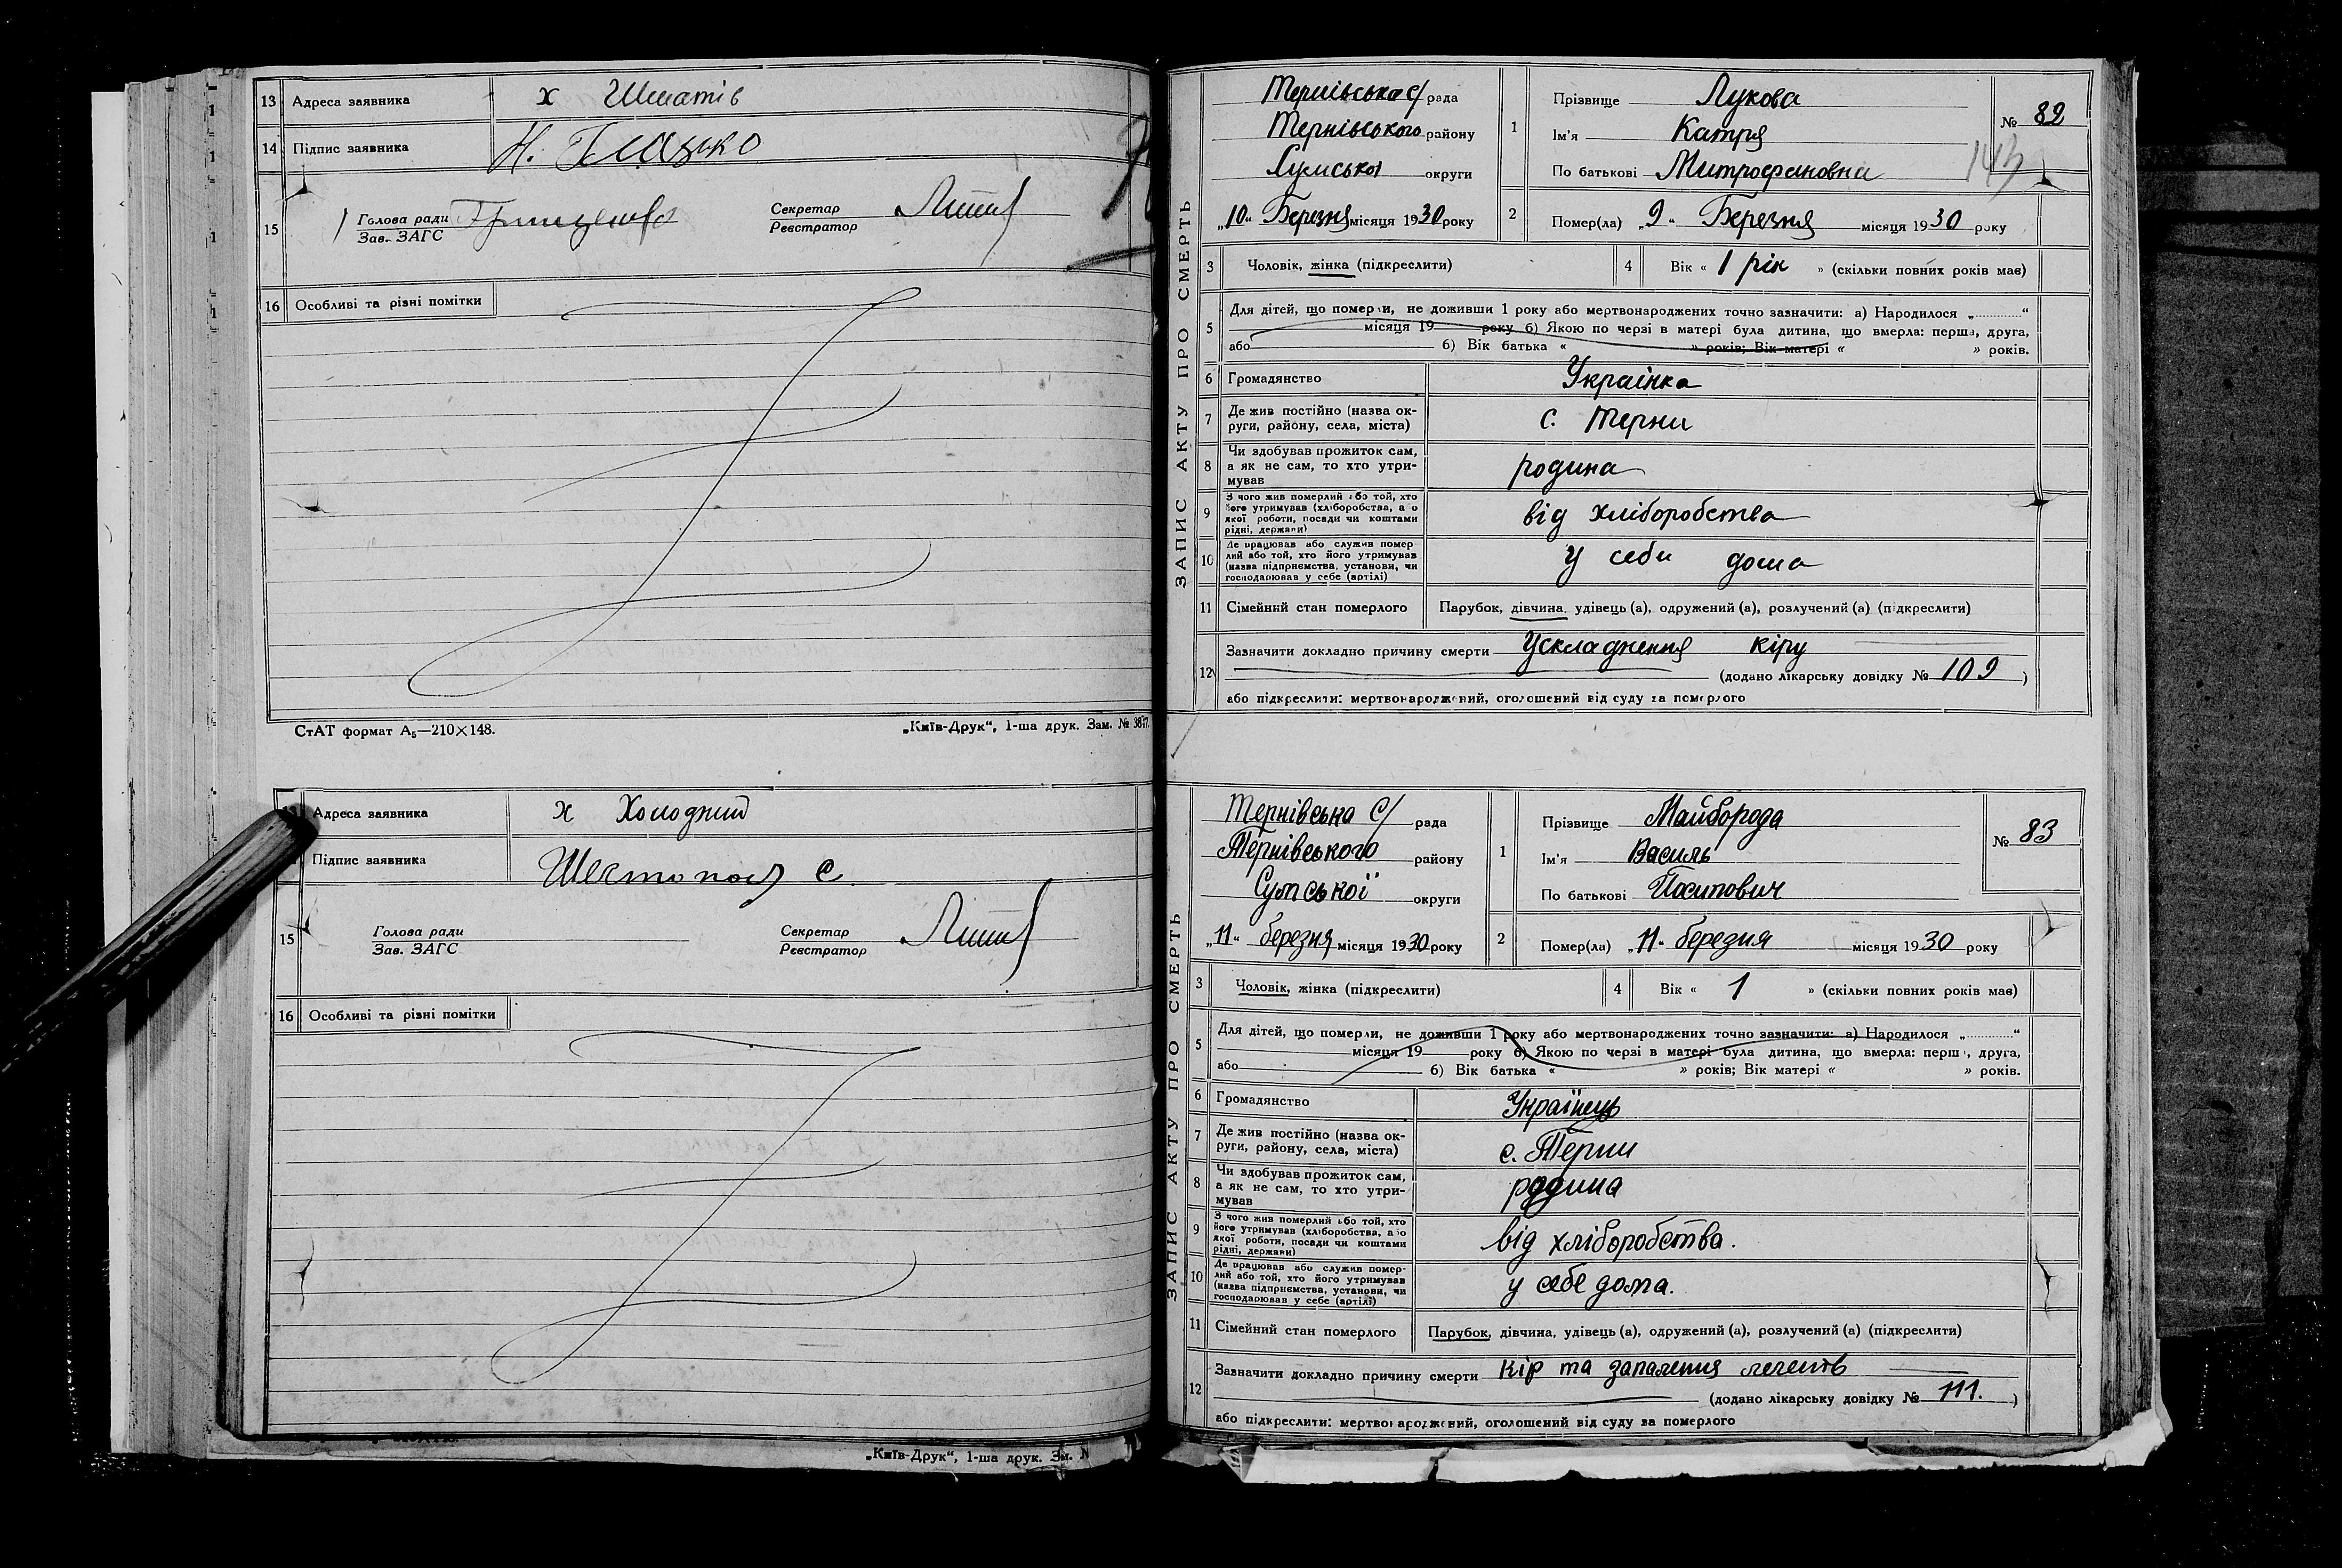 13 Адреса заявника х Шматів
14 Підпис заявника Н. Глазько
15 Голова ради Секретар
Зав. ЗАГС Реєстратор
16 Особливі та різні помітки
СтАТ формат А5—210×148. „Київ-Друк“, 1-ша друк. Зам. №
Адреса заявника х Холодний
Підпис заявника Шестопал С
15 Голова ради Секретар
Зав. ЗАГС Реєстратор
16 Особливі та різні помітки
„Київ-Друк“, 1-ша друк. Зм. N
ЗАПИС АКТУ ПРО СМЕРТЬ
Тернівська с/ рада
Тернівського району
Сумської округи
„10“ Березня місяця 1930 року
1 Прізвище Лукова
Ім'я Катря
По батькові Митрофановна
№ 82
143
2 Помер(ла) „9“ Березня місяця 1930 року
3 Чоловік, жінка (підкреслити) 4 Вік « 1 рік » (скільки повних років має)
5 Для дітей, що померли, не доживши 1 року або мертвонароджених точно зазначити: а) Народилося „............“
місяця 19 року б) Якою по черзі в матері була дитина, що вмерла: перша, друга,
або б) Вік батька « » років; Вік матері « » років.
6 Громадянство Українка
7 Де жив постійно (назва ок-
руги, району, села, міста) с. Терни
8 Чи здобував прожиток сам,
а як не сам, то хто утри-
мував родина
9 З чого жив померлий або той, хто
його утримував (хліборобства, або
якої роботи, посади чи коштами
рідні, держави) від хліборобства
10 Де працював або служив помер-
лий або той, хто його утримував
(назва підприємства, установи, чи
господарював у себе (артілі) у себи дома
11 Сімейний стан померлого Парубок, дівчина, удівець (а), одружений (а), розлучений (а) (підкреслити)
12 Зазначити докладно причину смерти Ускладнення кіру
(додано лікарську довідку № 109 )
або підкреслити: мертвонароджений, оголошений від суду за померлого
ЗАПИС АКТУ ПРО СМЕРТЬ
Тернівська С/ рада
Тернівського району
Сумської округи
„11“ березня місяця 1930 року
1 Прізвище Майборода
Ім'я Василь
По батькові Йосипович
№ 83
2 Помер(ла) „11“ березня місяця 1930 року
3 Чоловік, жінка (підкреслити) 4 Вік « 1 » (скільки повних років має)
5 Для дітей, що померли, не доживши 1 року або мертвонароджених точно зазначити: а) Народилося „............“
місяця 19 року б) Якою по черзі в матері була дитина, що вмерла: перша, друга,
або б) Вік батька « » років; Вік матері « » років.
6 Громадянство Українець
7 Де жив постійно (назва ок-
руги, району, села, міста) с. Терни
8 Чи здобував прожиток сам,
а як не сам, то хто утри-
мував родина
9 З чого жив померлий або той, хто
його утримував (хліборобства, або
якої роботи, посади чи коштами
рідні, держави) від хліборобства.
10 Де працював або служив помер-
лий або той, хто його утримував
(назва підприємства, установи, чи
господарював у себе (артілі) у себе дома.
11 Сімейний стан померлого Парубок, дівчина, удівець (а), одружений (а), розлучений (а) (підкреслити)
12 Зазначити докладно причину смерти кір та запалення легенів
(додано лікарську довідку № 111. )
або підкреслити: мертвонароджений, оголошений від суду за померлого